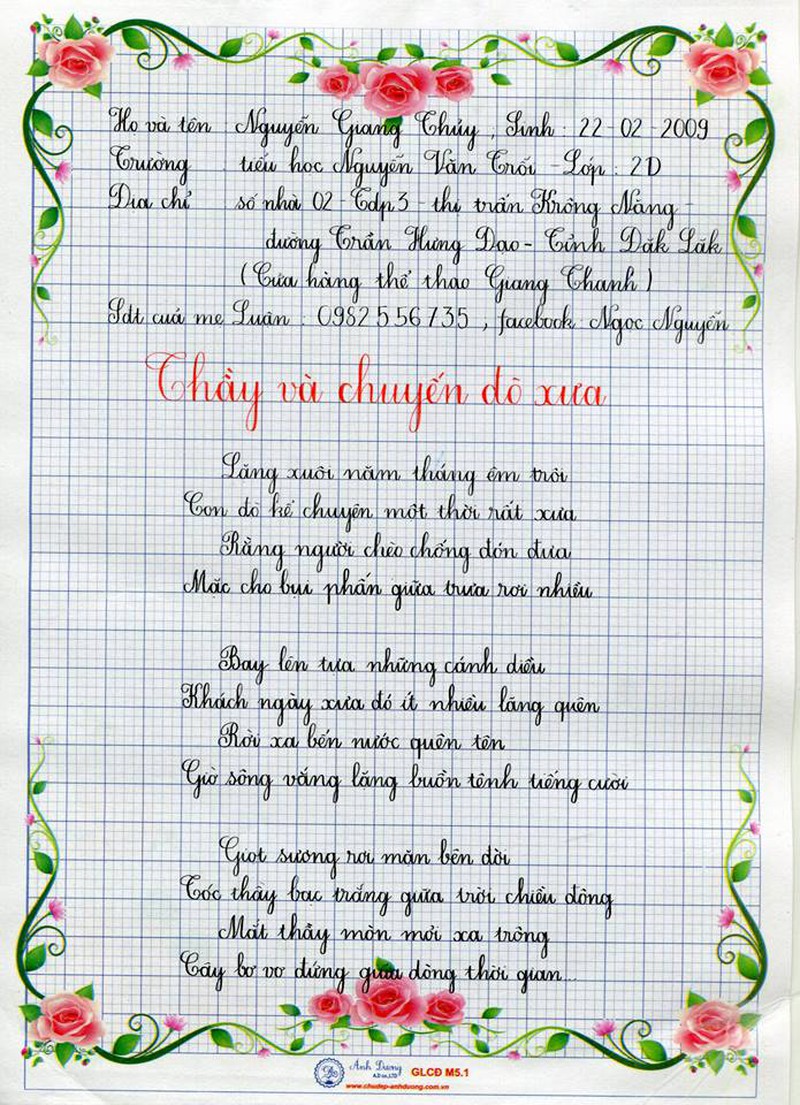 Họ và tên : Nguyễn Giang Thủy , Sinh : 22-02-2009
Trường : tiểu học Nguyễn Văn Trỗi - Lớp : 2D
Địa chỉ : số nhà 02 - Tdp3 - thị trấn Krông Năng -
đường Trần Hưng Đạo - Tỉnh Đăk Lăk
( Cửa hàng thể thao Giang Thanh )
Sdt của mẹ Luân : 0982 556 735 , facebook Ngọc Nguyễn
Thầy và chuyến đò xưa
Lặng xuôi năm tháng êm trôi
Con đò kể chuyện một thời rất xưa
Rằng người chèo chống đón đưa
Mặc cho bụi phấn giữa trưa rơi nhiều
Bay lên tựa những cánh diều
Khách ngày xưa đó ít nhiều lãng quên
Rời xa bến nước quên tên
Giờ sông vắng lặng buồn tênh tiếng cười
Giọt sương rơi mặn bên đời
Tóc thầy bạc trắng giữa trời chiều đông
Mắt thầy mòn mỏi xa trông
Cây bơ vơ đứng giữa dòng thời gian...
Anh Dương
A.D co.,LTD
GLCĐ M5.1
www.chudep-anhduong.com.vn